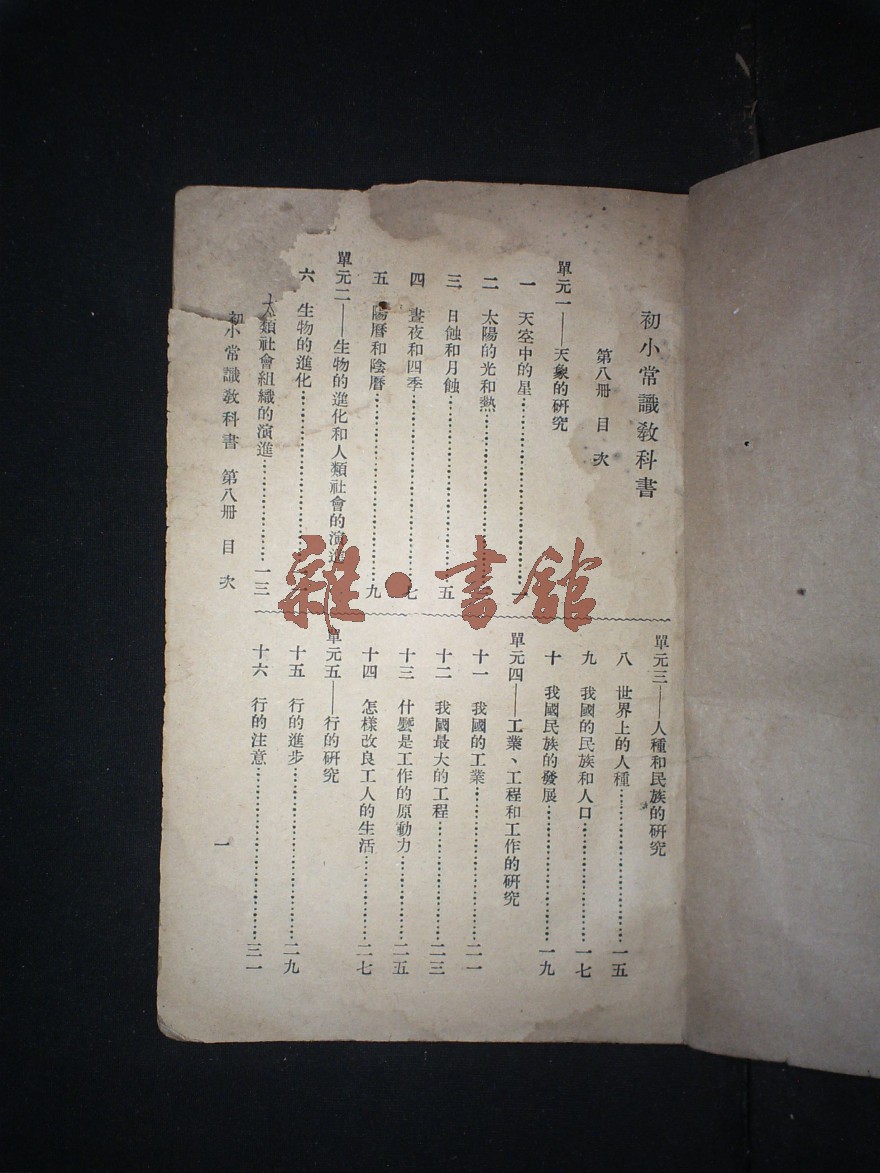 初小常識教科書
第八册 目次
單元一——天象的研究
一 天空中的星……一
二 太陽的光和熱……
三 日蝕和月蝕……五
四 晝夜和四季……七
五 陽曆和陰曆……九
單元二——生物的進化和人類社會的演進
六 生物的進化……
人類社會組織的演進……一三
單元三——人種和民族的研究
八 世界上的人種……一五
九 我國的民族和人口……一七
十 我國民族的發展……一九
單元四——工業、工程和工作的研究
十一 我國的工業……二一
十二 我國最大的工程……二三
十三 什麼是工作的原動力……二五
十四 怎樣改良工人的生活……二七
單元五——行的研究
十五 行的進步……二九
十六 行的注意……三一
初小常識教科書 第八册 目次
一
雜·書館